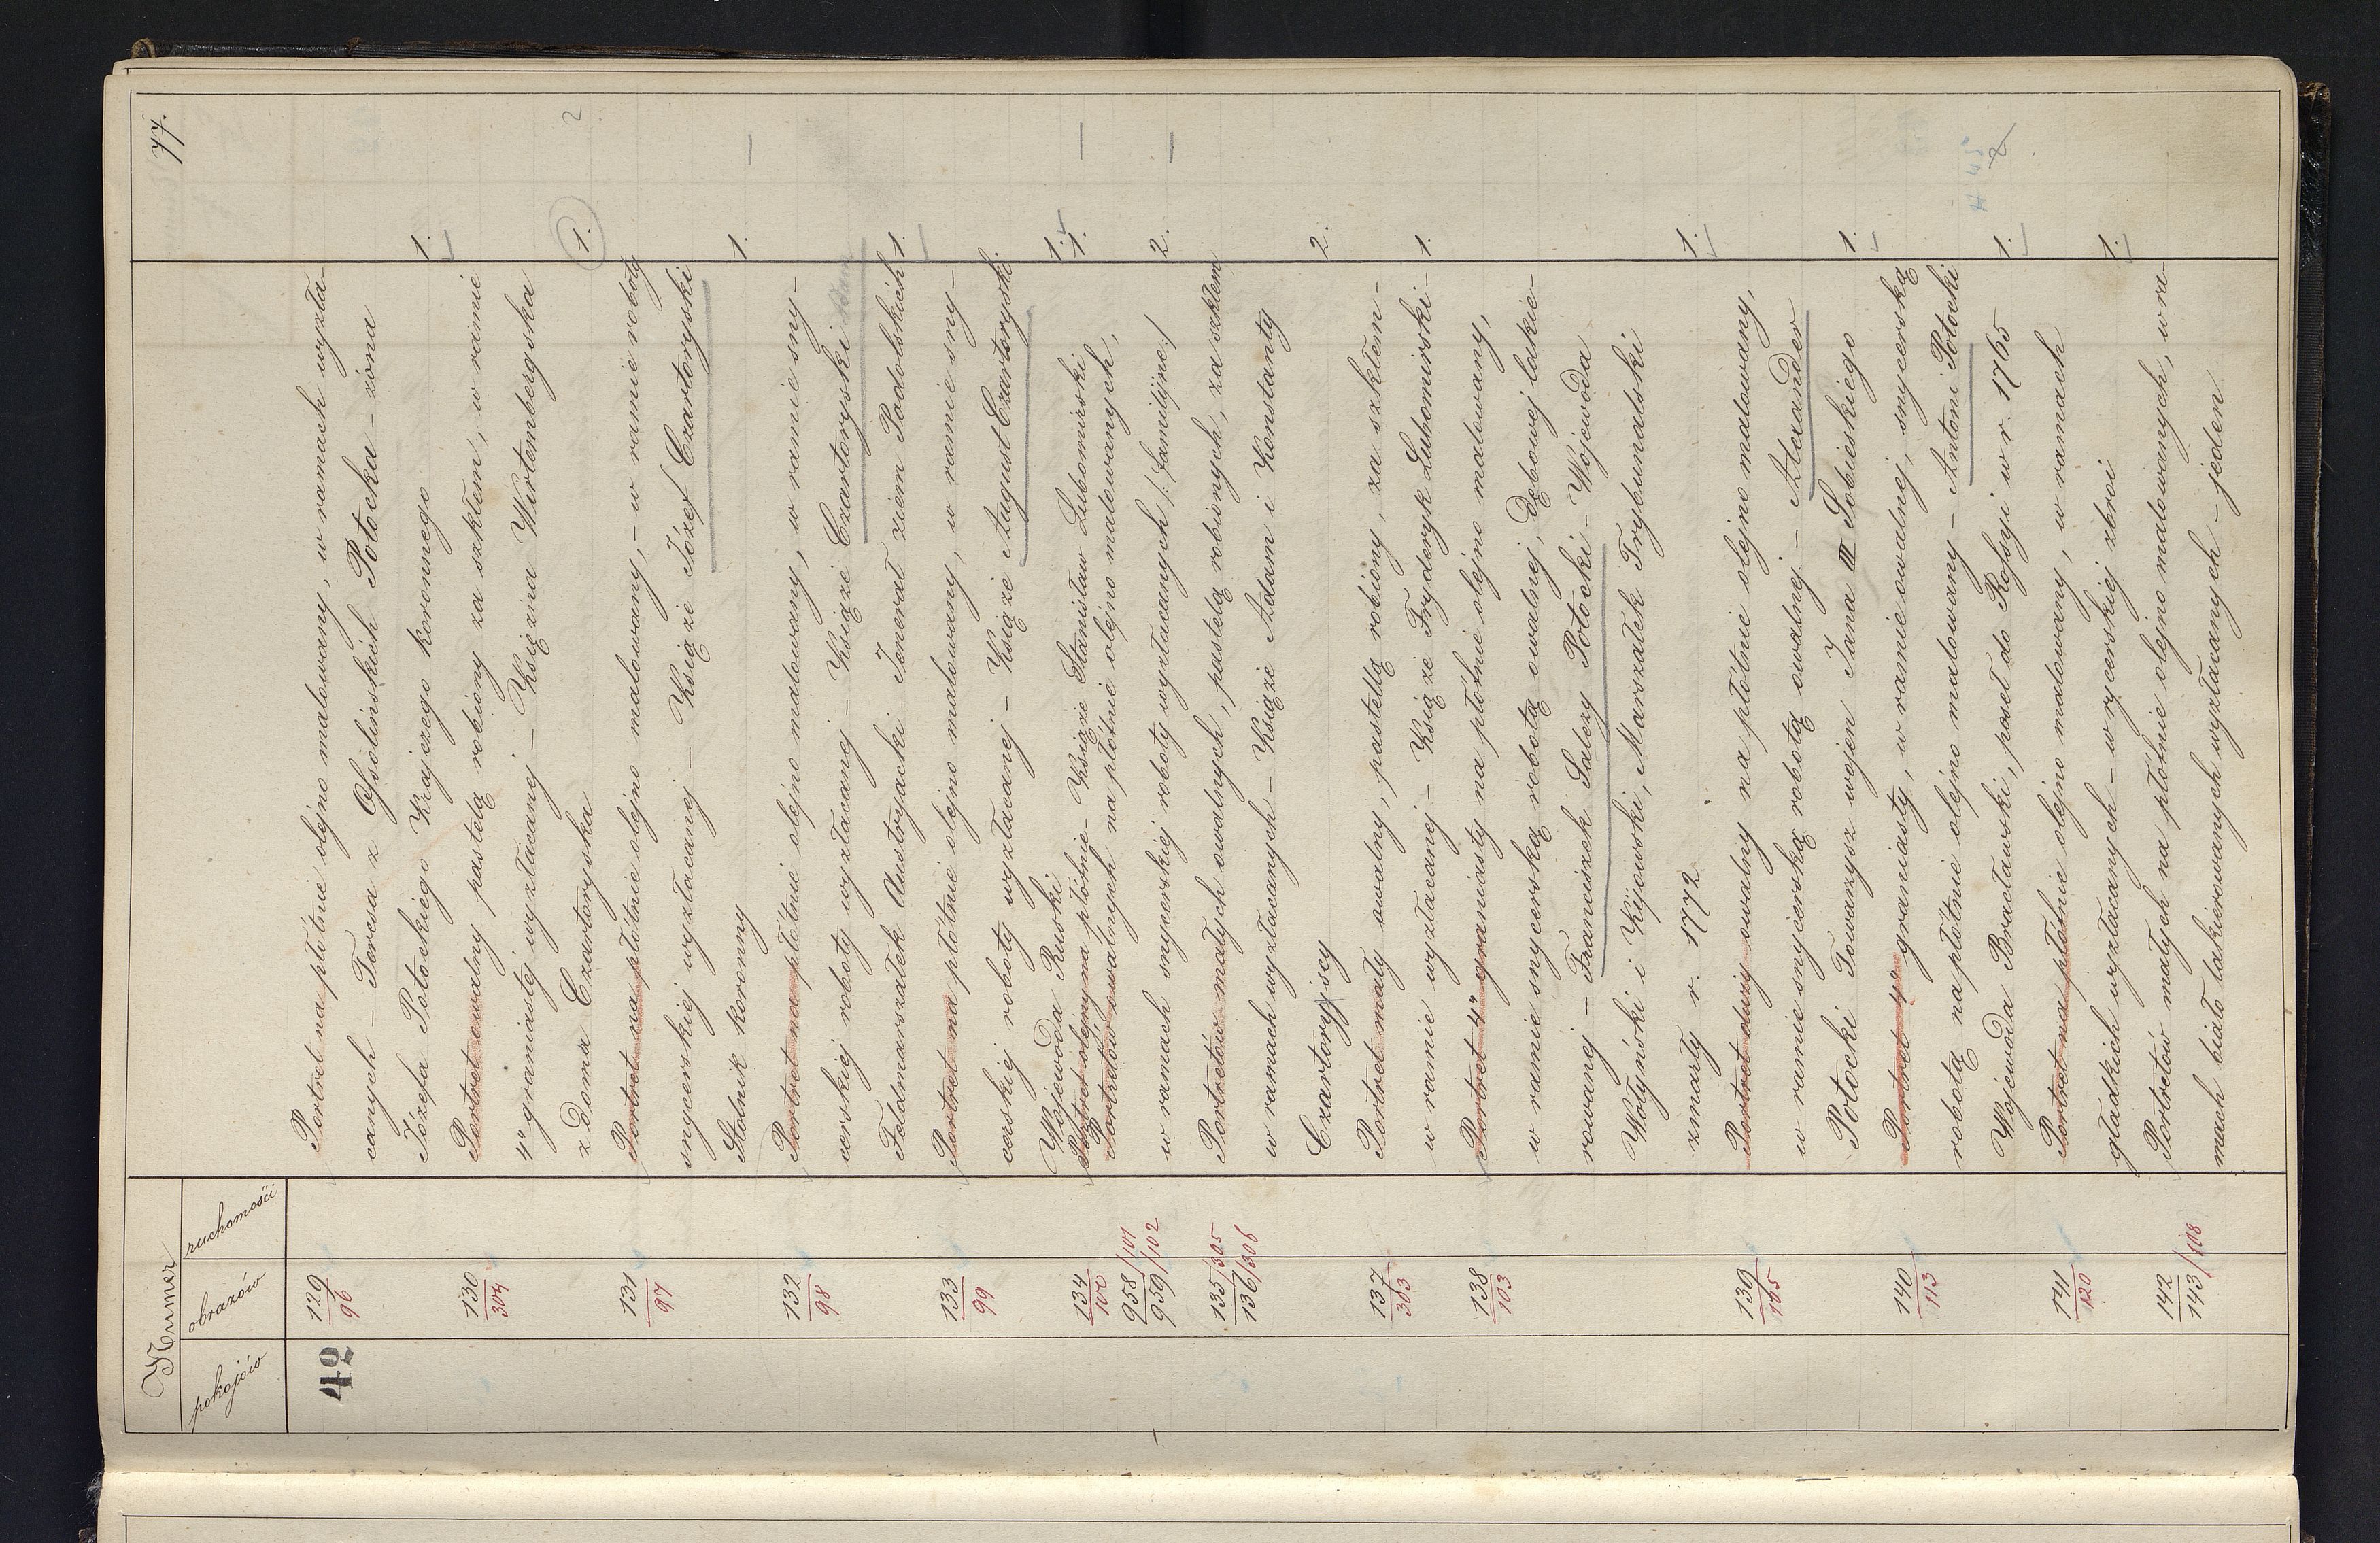 77.
Numer
pokojów
obrazów
ruchomości
42
129
96
Portret na płótnie olejno malowany, w ramach wyzła-
canych – Teresa z Ossolińskich Potocka – żona
Józefa Potockiego Krajczego koronnego 1.
130
304
Portret owalny pastelą robiony za szkłem, w ramie
4º graniastej wyzłacanej – Księżna Wirtembergska
z Domu Czartoryska 1.
2
131
97
Portret na płótnie olejno malowany, – w ramie roboty
snycerskiej wyzłacanej – Książe Józef Czartoryski
Stolnik koronny 1.
132
98
Portret na płótnie olejno malowany, w ramie sny-
cerskiej roboty wyzłacanej – Książe Czartoryski
Feldmarszałek Austryjacki – Jenerał ziem Podolskich 1.
133
99
Portret na płótnie olejno malowany, w ramie sny-
cerskiej roboty wyzłacanej – Książe August Czartoryski
Wojewoda Ruski 1.
134
100
Portret olejny na płótnie – Książe Stanisław Lubomirski 1.
958/101
959/102
Portretów owalnych na płótnie olejno malowanych,
w ramach snycerskiej roboty wyzłacanych /: familijne :/ 2.
135/305
136/306
Portretów małych owalnych, pastelą robionych, za szkłem
w ramach wyzłacanych – Książe Adam i Konstanty
Czartoryjscy 2.
137
303
Portret mały owalny, pastellą robiony, za szkłem –
w ramie wyzłacanej – Książe Fryderyk Lubomirski – 1.
138
103
Portret 4º graniasty na płótnie olejno malowany,
w ramie snycerską robotą owalnej, dębowej lakie-
rowanej – Franciszek Salezy Potocki – Wojewoda
Wołyński i Kijowski, Marszałek Trybunalski
zmarły r. 1772. 1.
139
105
Portret duży owalny na płótnie olejno malowany,
w ramie snycerską robotą owalnej – Alexander
Potocki Towarzysz wojen Jana III Sobieskiego 1.
140
113
Portret 4º graniasty, w ramie owalnej, snycerską
robotą na płótnie olejno malowany – Antoni Potocki
Wojewoda Bracławski, poseł do Rossyi w r. 1765 1.
2
141
120
Portret na płótnie olejno malowany, w ramach
gładkich wyzłacanych – w rycerskiej zbroi 1.
142
143/108
Portretów małych na płótnie olejno malowanych, w ra-
mach biało lakierowanych wyzłacanych – jeden